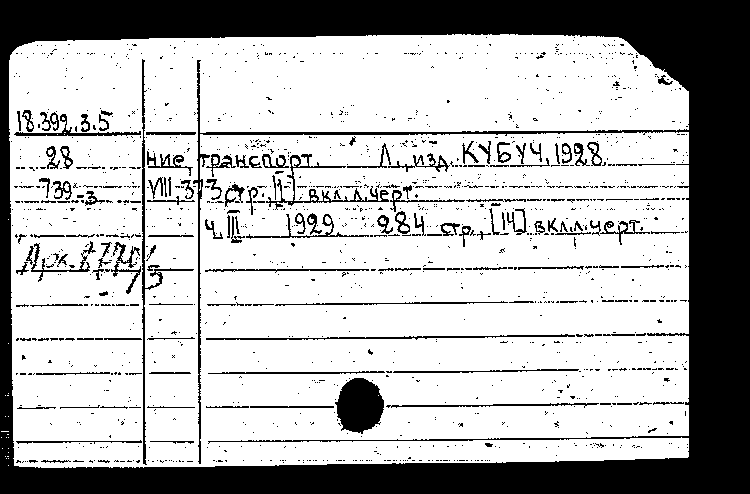 18.392.3.5
28 ние, транспорт. Л., изд. КУБУЧ, 1928.
739-3 VIII, 373 стр., [1] вкл. л. черт.
Ч. III 1929. 284 стр., [14] вкл. л. черт.
Арк.